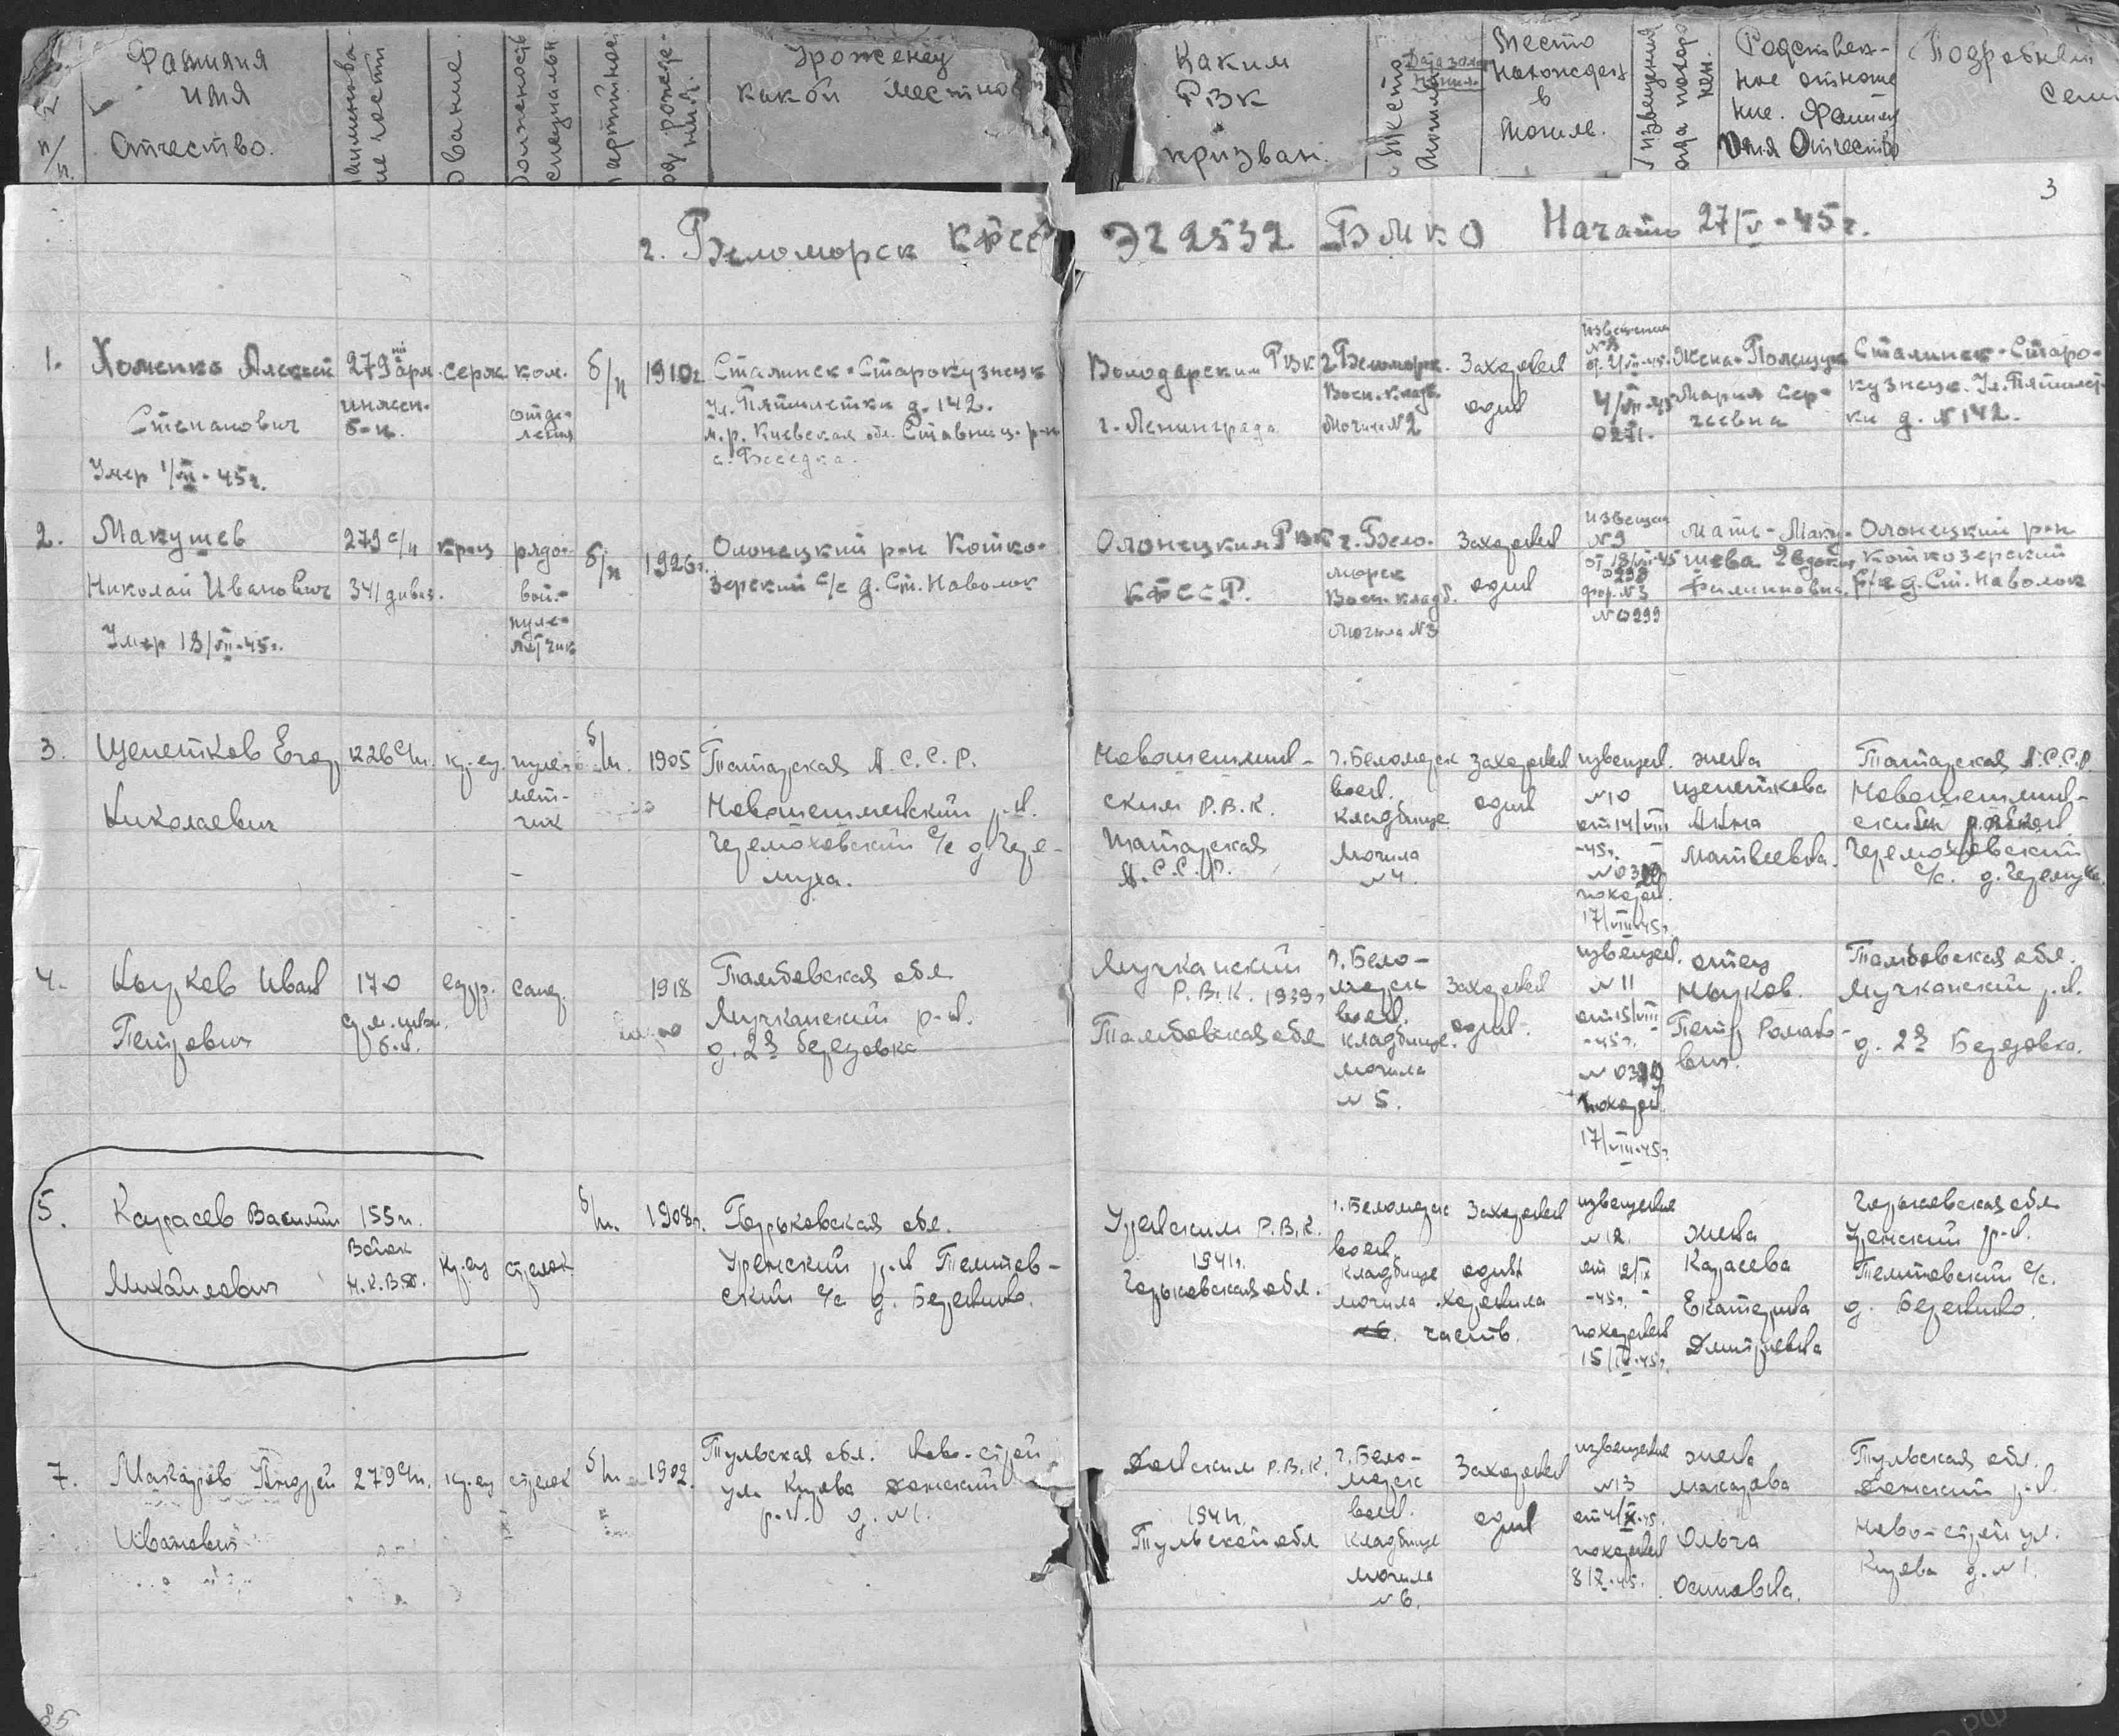 №
п/п.
Фамилия
имя
Отчество.
Звание.
Должность
специальн
Уроженец
какой местнос
Каким
РВК
призван.
Место
нахожден
в
могиле.
Родствен-
ное отноше
ние. Фамил
Имя Отчество
Подробный
Семь
3
г. Беломорск КФССР
ЭГ 2532 БМКО Начато 27/V-45г.
1. Хоменко Алексей
Степанович
Умер 1/VII-45г.
279й арм.
инжен.
б-н.
серж
ком.
отде-
ления
б/п
1910г
Сталинск-Старокузнецк
Ул. Пятилетки д. 142.
м.р. Киевская обл. Ставищ. р-н
с. Беседка.
Володарским РВК
г. Ленинграда
г. Беломорк.
Воен. кладб.
Могила №2
Захоронен
один
4/VII-45
0271.
Жена-Полещук
Мария Сер-
геевна
Сталинск-Старо-
кузнецк. Ул. Пятилет-
ки д. №142.
2. Макушев
Николай Иванович
Умер 13/VII-45г.
279 с/п
341 дивиз.
кр-ц
рядо-
вой-
пуле-
мётчик
б/п
1926г.
Олонецкий р-н Котко-
зерский с/с д. Ст. Наволок
Олонецким РВК
КФССР.
г. Бело-
морск
Воен. кладб.
Могила №3
Захоронен
один
Извещен
№9
от 13/VII-45
0298
фор. №3
№0299
Мать-Маку-
шева Евдокия
Филипповна.
Олонецкий р-н
Коткозерский
с/с д. Ст. Наволок
3. Щепетков Егор
Николаевич
1226 с/п.
кр-ец.
пуле-
мет-
чик
б/п.
1905
Татарская А.С.С.Р.
Новошешминский р-н.
Черемоховский с/с д. Чере-
муха.
Новошешмин-
ским Р.В.К.
Татарская
А.С.С.Р.
г. Беломорск
воен.
кладбище
могила
№4.
захоронен
один
извещен.
№10
от 14/VIII
-45г.
похорон.
17/VIII-45г.
жена
Щепеткова
Анна
Матвеевна.
Татарская А.С.С.Р.
Новошешмин-
Черемоховский
с/с. д. Черемуха.
4. Цыцков Иван
Петрович
170
б-н.
ефр.
сапер.
1918
Тамбовская обл
Мучкапский р-н.
д. 2я березовка
Мучкапский
Р.В.К. 1939г
Тамбовская обл
г. Бело-
морск
воен.
кладбище.
могила
№5.
Захоронен
один.
извещен.
№11
от 15/VIII
-45г.
похорон.
17/VIII-45г.
отец
Петр Романо-
вич.
Тамбовская обл.
Мучкапский р-н.
д. 2я Березовка.
5. Карасев Василий
Михайлович
155 п.
Войск
Н.К.В.Д.
кр-ец
стрелок
б/п.
1908г.
Горьковская обл.
Уренский р-н Темтов-
ский с/с д. Березино.
Уренским Р.В.К.
1941г.
Горьковская обл.
г. Беломорск
воен.
кладбище
могила
№6.
Захоронен
один
хоронила
часть.
извещение
№12.
от 12/IX
-45г.
похоронен
15/IX-45г.
жена
Карасева
Екатерина
Дмитриевна
Горьковская обл
Уренский р-н.
Темтовский с/с.
д. Березино.
7. Макаров Андрей
Иванович
279 с/п.
кр-ец
стрелок
б/п
1902.
Тульская обл. Ново-строй
ул Кирова Донской
р-н. д. №1.
Донским Р.В.К.
1941г.
Тульской обл
г. Бело-
морск
воен.
кладбище
могила
№6.
Захоронен
один
извещение
№13
от 4/X-45.
похоронен
8/X-45.
жена
Макарова
Ольга
Осиповна.
Тульская обл.
Донской р-н.
Ново-строй ул.
Кирова д. №1.
85